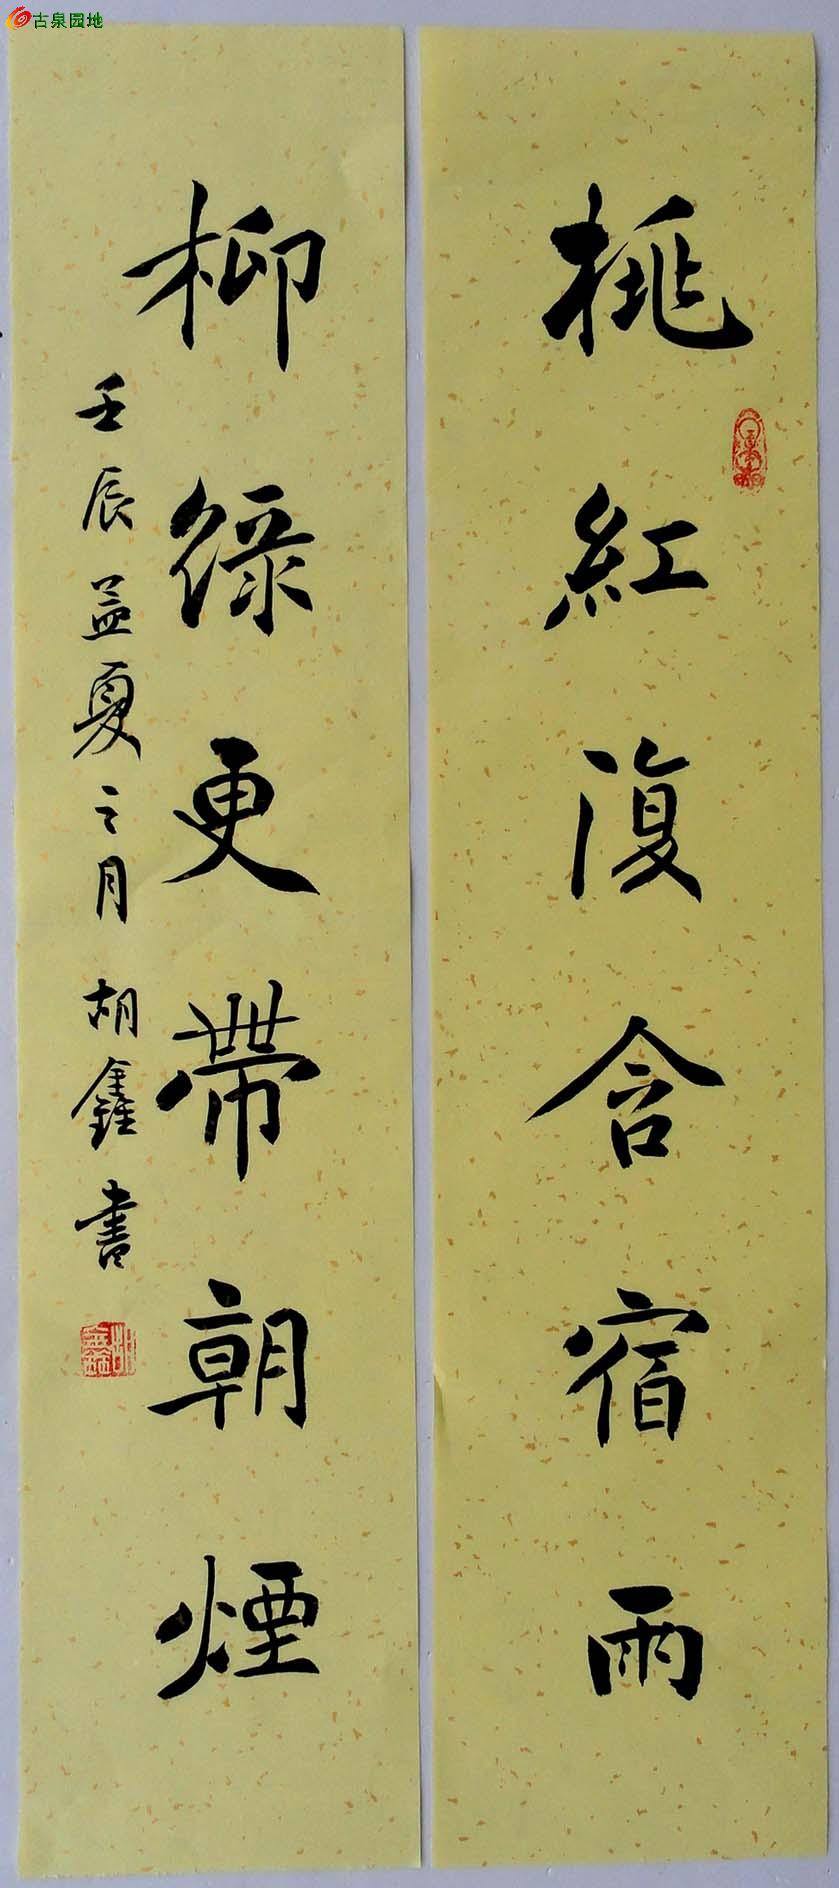 古泉园地
桃紅復含宿雨
柳綠更帶朝煙
壬辰孟夏之月 胡鑫書
胡鑫